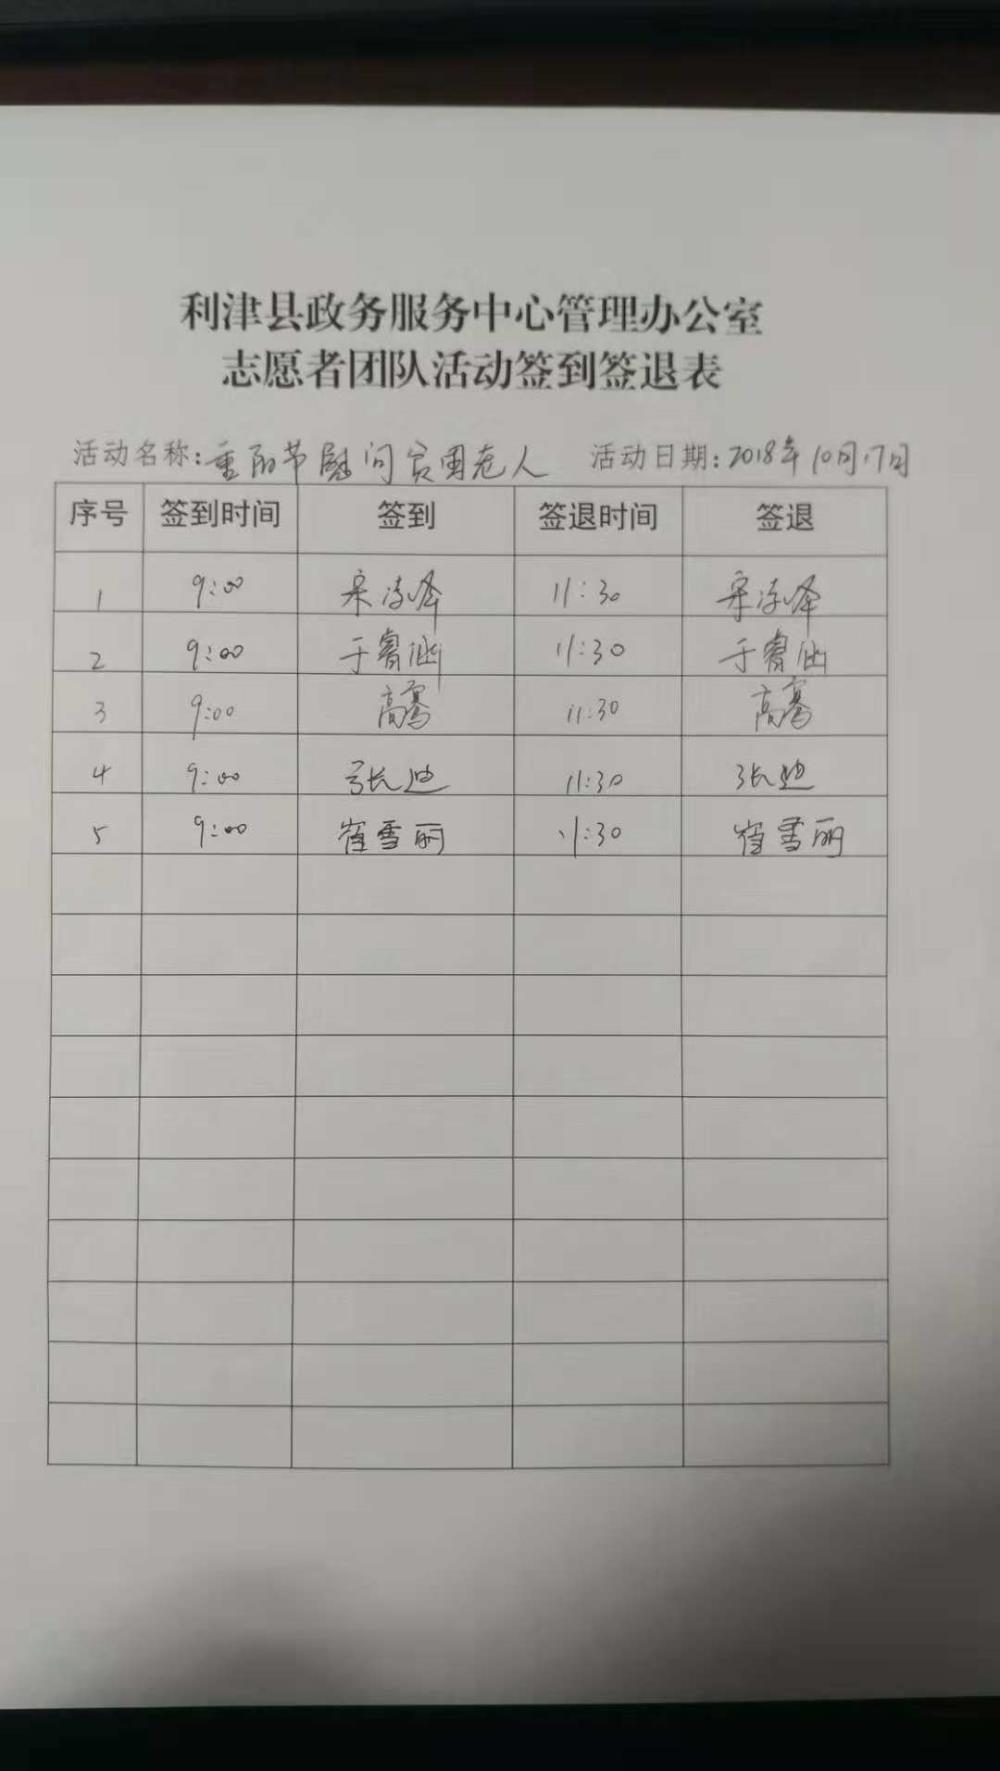 利津县政务服务中心管理办公室
志愿者团队活动签到签退表
活动名称:重阳节慰问贫困老人 活动日期:2018年10月17日
序号 签到时间 签到 签退时间 签退
1 9:00 宋 11:30 宋
2 9:00 于睿涵 11:30 于睿涵
3 9:00 高骞 11:30 高骞
4 9:00 张迪 11:30 张迪
5 9:00 崔雪丽 11:30 崔雪丽